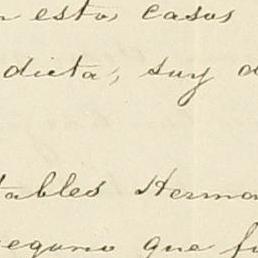 n estos casos
dicta, suy d
tables Herma
egano que fu